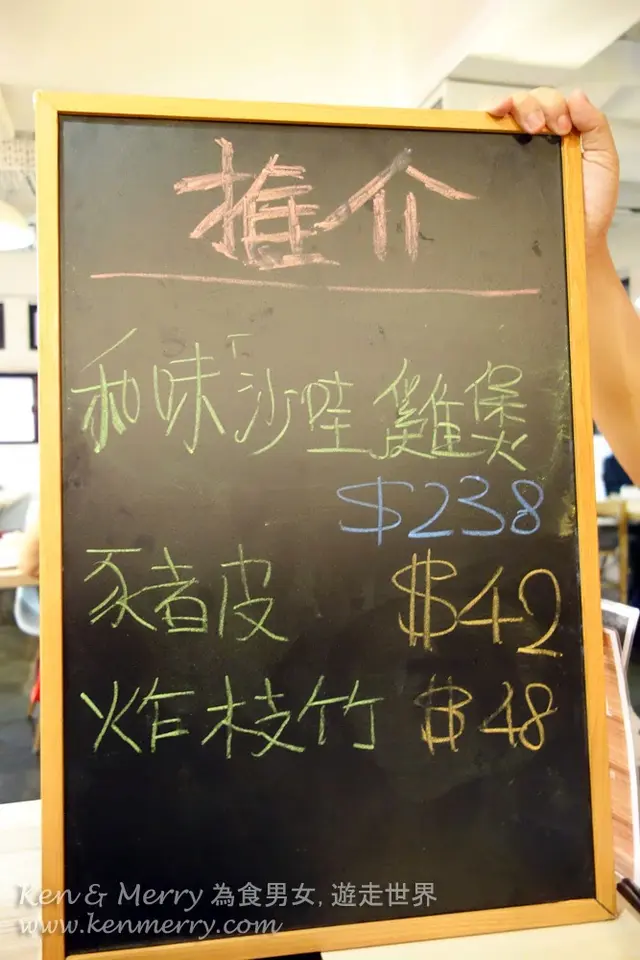 推介
和味沙哇雞煲
$238
豬皮 $42
炸枝竹 $48
Ken & Merry 為食男女, 遊走世界
www.kenmerry.com